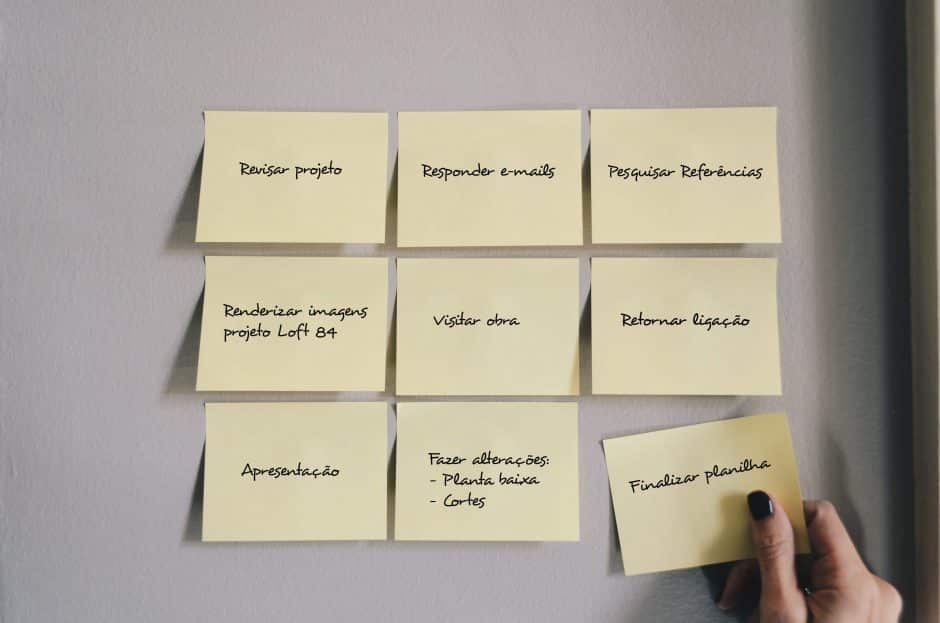 Revisar projeto
Responder e-mails
Pesquisar Referências
Renderizar imagens
projeto Loft 84
Visitar obra
Retornar ligação
Apresentação
Fazer alterações:
- Planta baixa
- Cortes
Finalizar planilha